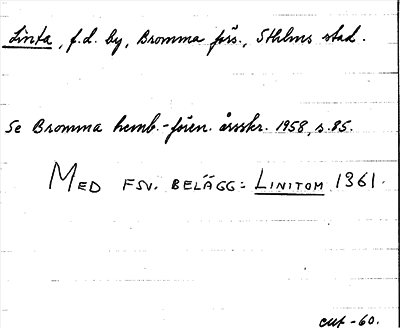 Linta, f.d. by, Bromma förs., Sthlms stad.
Se Bromma hemb.-fören. årsskr. 1958, s. 85.
MED FSV. BELÄGG: LINITOM 1361.
-60.